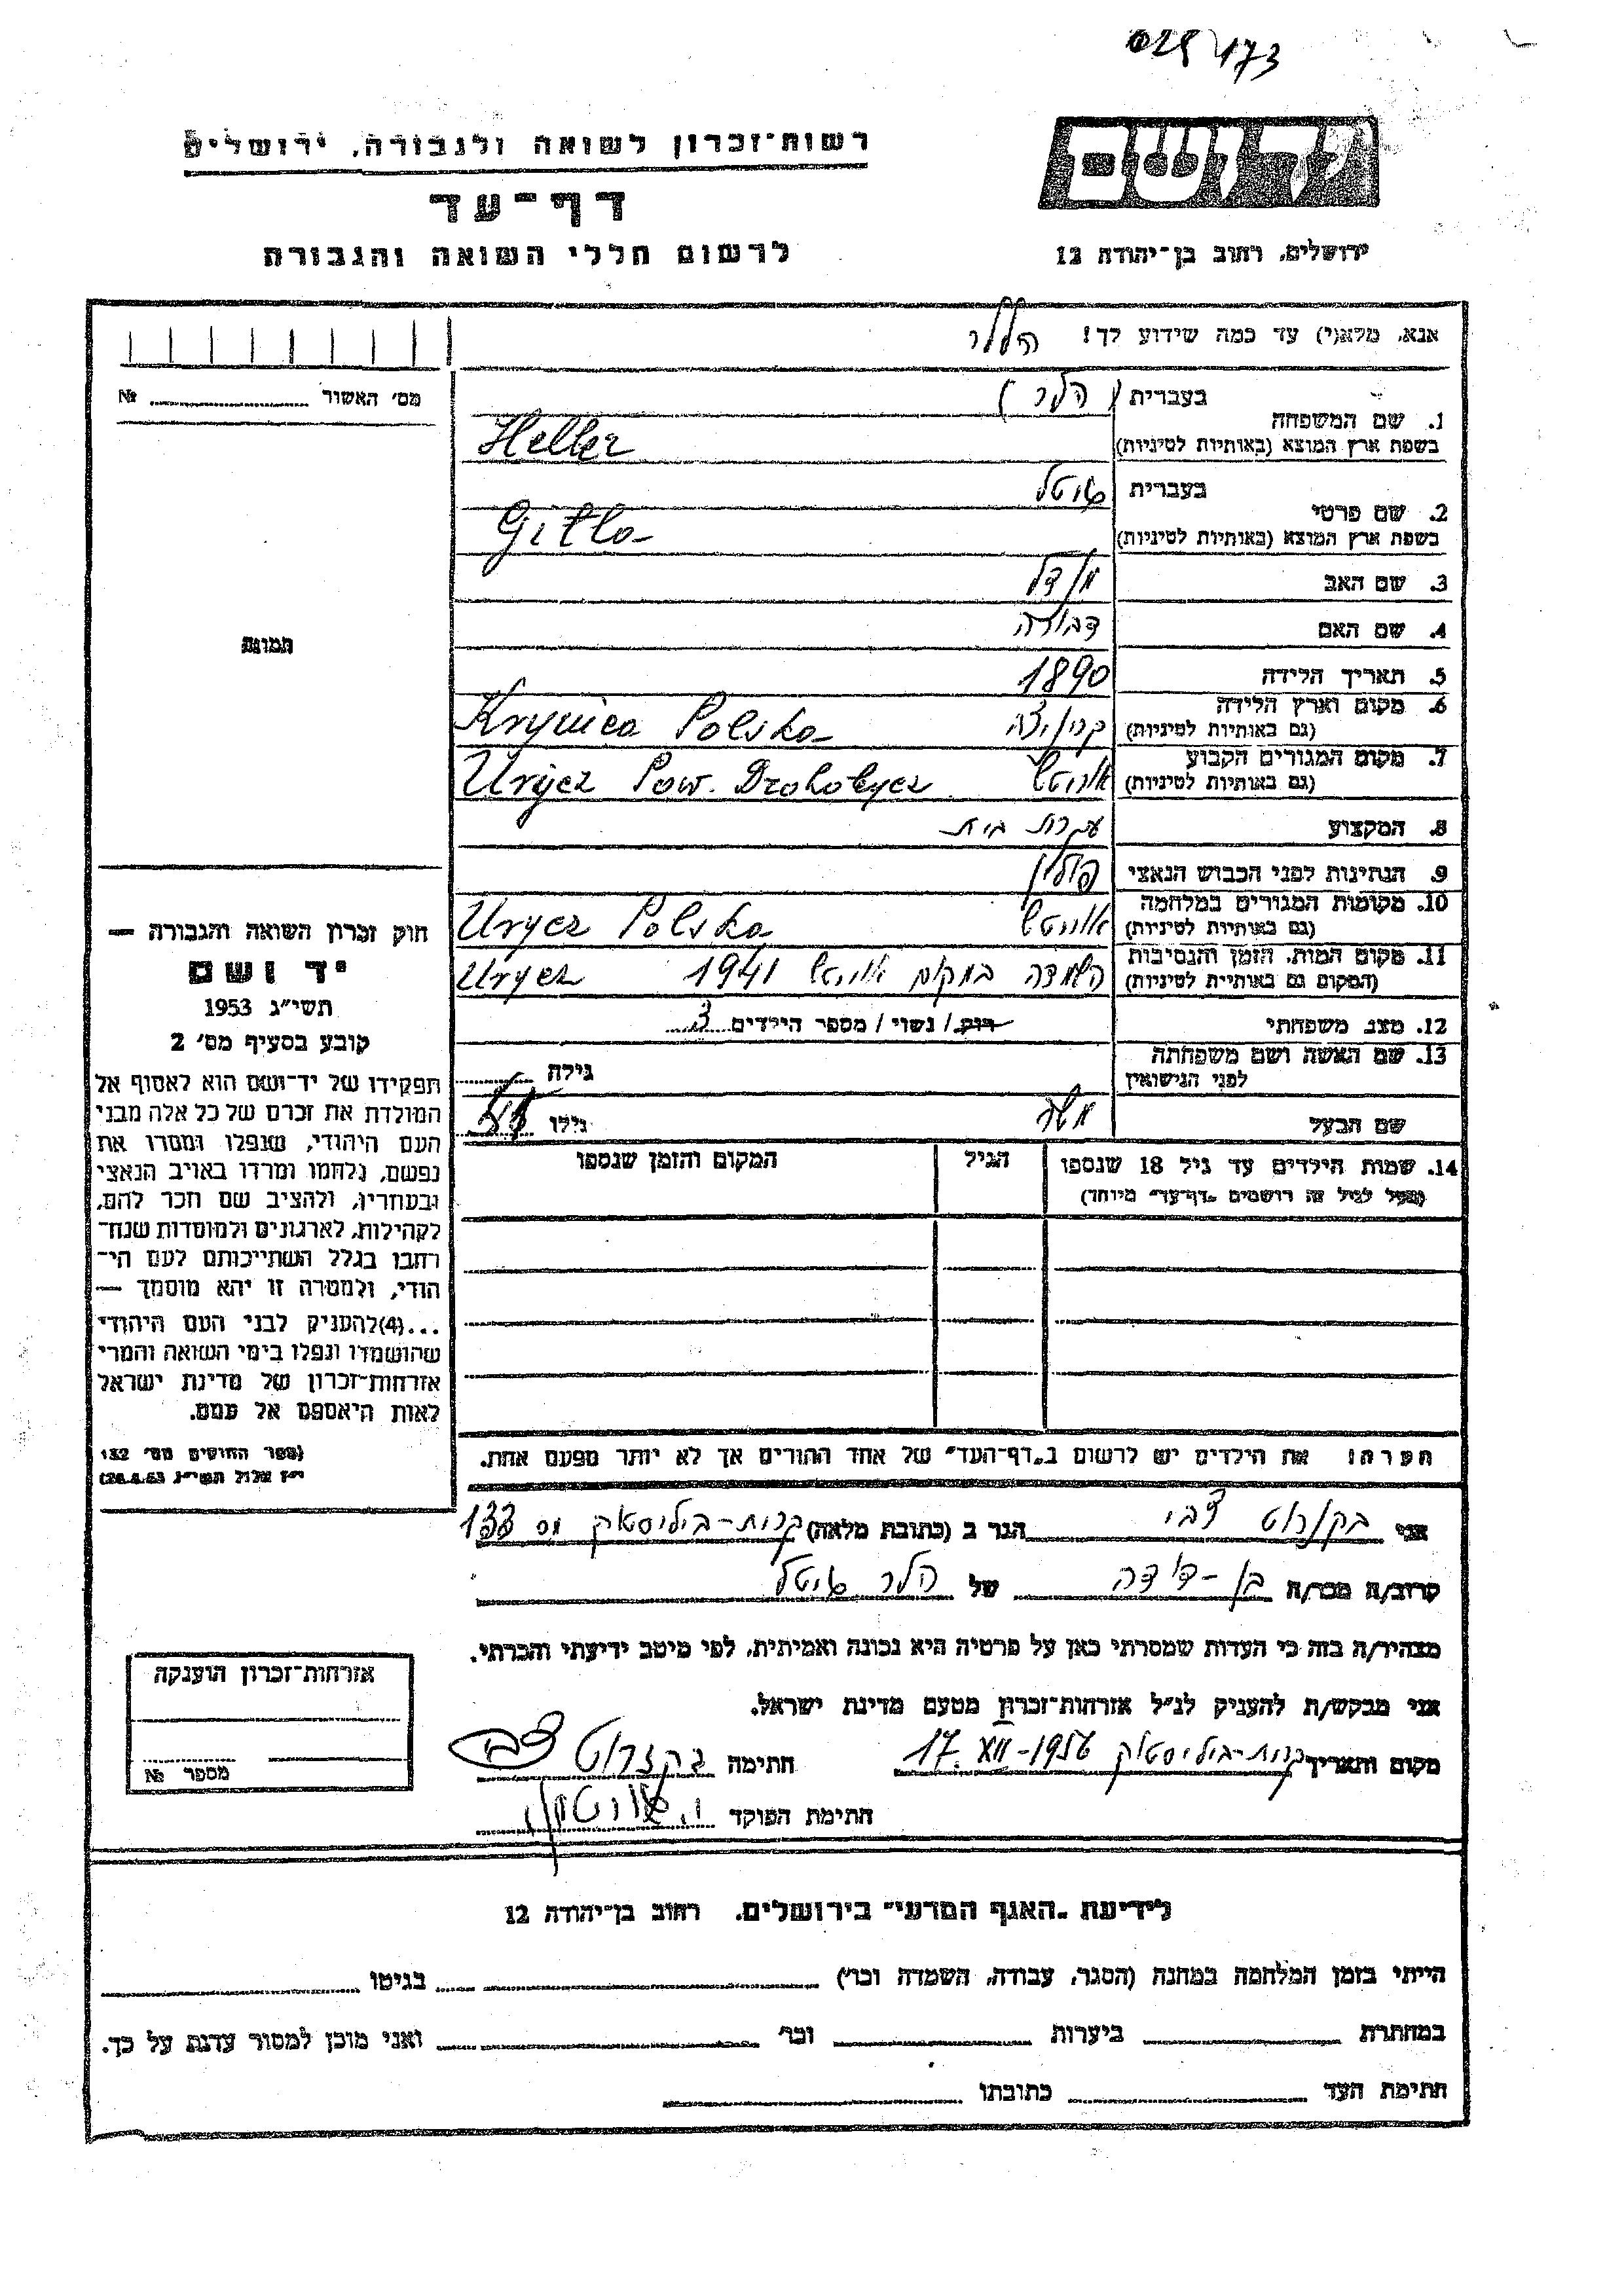 028 173
רשות־זכרון לשואה ולגבורה, ירושלים
דף־עד
לרשום חללי השואה והגבורה
ירושלים, רחוב בן־יהודה 12
אנא, מלא(י) עד כמה שידוע לך! הללר
מס' האשור № 
1. שם המשפחה
בעברית (הלר)
בשפת ארץ המוצא (באותיות לטיניות) Heller
2. שם פרטי
בעברית גיטל
בשפת ארץ המוצא (באותיות לטיניות) Gitla
3. שם האב מנדל
4. שם האם דבורה
5. תאריך הלידה 1890
6. מקום וארץ הלידה
(גם באותיות לטיניות) קריניצה Krynica Polska
7. מקום המגורים הקבוע
(גם באותיות לטיניות) אוריטש Urycz Pow. Drohobycz
8. המקצוע עקרת בית
9. הנתינות לפני הכבוש הנאצי פולין
10. מקומות המגורים במלחמה
(גם באותיות לטיניות) אוריטש Urycz Polska
11. מקום המות, הזמן והנסיבות
(המקום גם באותיות לטיניות) השמדה במקום אוריטש 1941 Urycz
12. מצב משפחתי רווק / נשוי / מספר הילדים 3
13. שם האשה ושם משפחתה
לפני הנישואין גילה
שם הבעל משה גילו
14. שמות הילדים עד גיל 18 שנספו הגיל המקום והזמן שנספו
(מעל לגיל זה רושמים "דף־עד" מיוחד)
הערה: את הילדים יש לרשום ב"דף־העד" של אחד ההורים אך לא יותר מפעם אחת.
תמונה
חוק זכרון השואה והגבורה —
יד ושם
תשי"ג 1953
קובע בסעיף מס' 2
תפקידו של יד־ושם הוא לאסוף אל
המולדת את זכרם של כל אלה מבני
העם היהודי, שנפלו ומסרו את
נפשם, נלחמו ומרדו באויב הנאצי
ובעוזריו, ולהציב שם וזכר להם,
לקהילות, לארגונים ולמוסדות שנח־
רבו בגלל השתייכותם לעם הי־
הודי, ולמטרה זו יהא מוסמך —
...(4)להעניק לבני העם היהודי
שהושמדו ונפלו בימי השואה והמרי
אזרחות־זכרון של מדינת ישראל
לאות היאספם אל עמם.
(ספר החוקים מס' 132
י"ז אלול תשי"ג 28.8.53)
אני בקנרוט צבי הגר ב (כתובת מלאה) קרית-ביליסטוק מס 133
קרוב/ה מכר/ה בן-דודה של הלר גיטל
מצהיר/ה בזה כי העדות שמסרתי כאן על פרטיה היא נכונה ואמיתית, לפי מיטב ידיעתי והכרתי.
אני מבקש/ת להעניק לנ"ל אזרחות־זכרון מטעם מדינת ישראל.
מקום ותאריך קרית-ביליסטוק 17. XII-1956 חתימה בקנרוט צבי
חתימת הפוקד
אזרחות־זכרון הוענקה
מספר №
לידיעת "האגף המדעי" בירושלים, רחוב בן־יהודה 12
הייתי בזמן המלחמה במחנה (הסגר, עבודה, השמדה וכו') בגיטו
במחתרת ביערות וכו' ואני מוכן למסור עדות על כך.
חתימת העד כתובתו